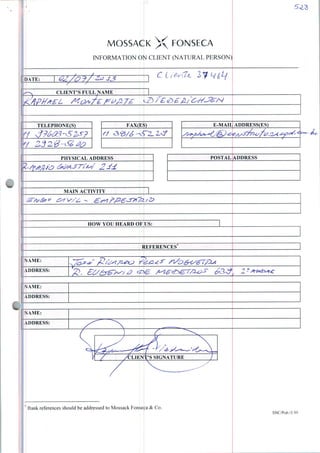 523
MOSSACK FONSECA
INFORMATION ON CLIENT (NATURAL PERSON)
Cliente 37464
DATE: 02/07/2013
CLIENT'S FULL NAME
RAPHAEL MONTE FORTE DIEDERICHSEN
TELEPHONE(S) FAX(ES) E-MAIL ADDRESS(ES)
11 11 3816-5225
11 2928-5600
PHYSICAL ADDRESS POSTAL ADDRESS
R. MARIO 211
MAIN ACTIVITY
ENGº CIVIL - EMPRESARIO
HOW YOU HEARD OF US:
REFERENCES*
NAME: José RICARDO NOGUEIRA
ADDRESS: R. EUGENIO DE MEDEIROS 639, 2º ANDAR
NAME:
ADDRESS:
NAME:
ADDRESS:
CLIENT'S SIGNATURE
* Bank references should be addressed to Mossack Fonseca & Co.